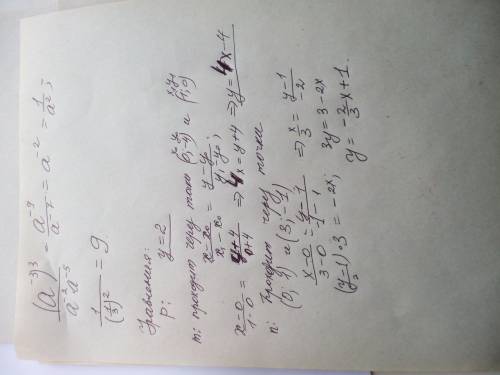 (a⁻³)³ / a⁻²a⁻⁵ = a⁻⁹ / a⁻⁷ = a⁻² = 1/a²;
1/(1/3)² = 9
Уравнения:
p: y = 2
m: проходит через точки (0; -4) и (1; 0)
x₀ y₀ x₁ y₁
(x - x₀)/(x₁ - x₀) = (y - y₀)/(y₁ - y₀);
(x - 0)/(1 - 0) = (y + 4)/(0 + 4) ⇒ 4x = y + 4 ⇒ y = 4x - 4
n: проходит через точки
(0; 1) и (3; -1)
(x - 0)/(3 - 0) = (y - 1)/(-1 - 1) ⇒ x/3 = (y - 1)/-2
(y - 1)·3 = -2x; 3y = 3 - 2x
y = -2/3 x + 1.